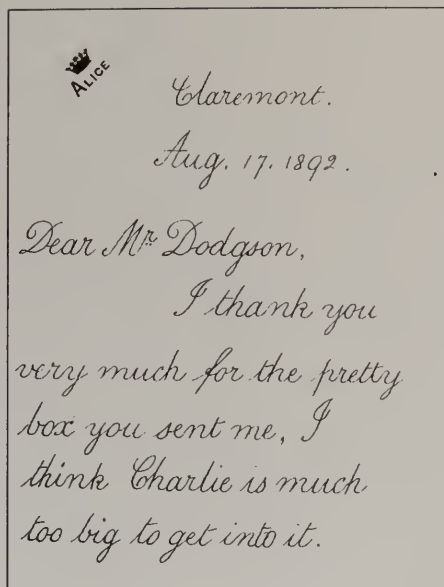 ALICE
Claremont.
Aug. 17. 1892.
Dear Mr. Dodgson,
I thank you
very much for the pretty
box you sent me, I
think Charlie is much
too big to get into it.